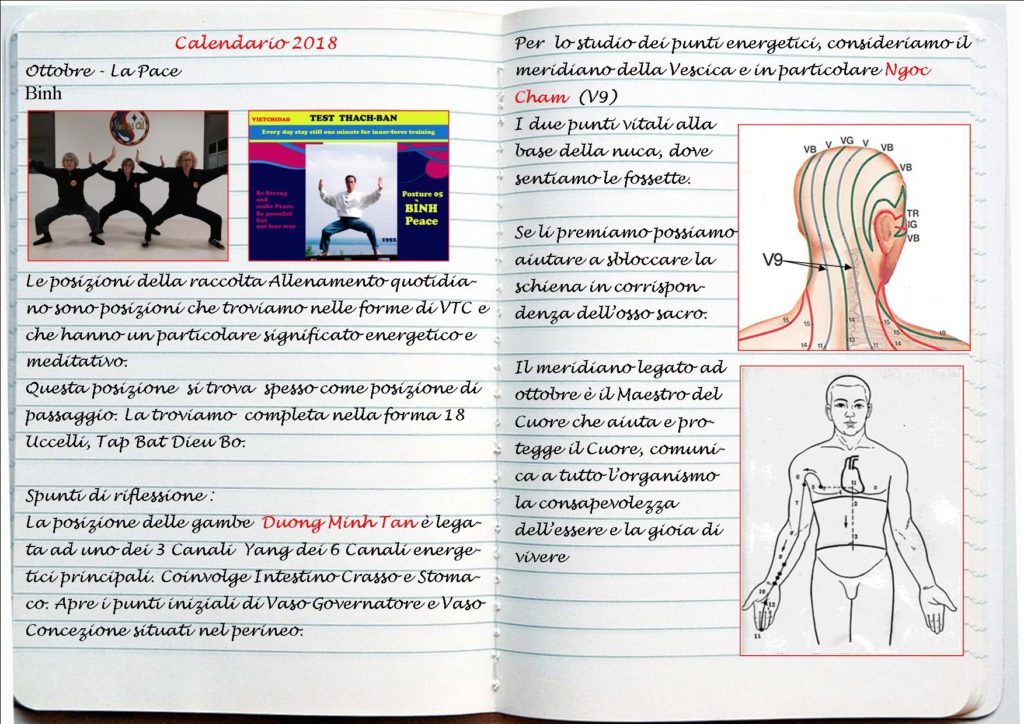 Calendario 2018
Ottobre - La Pace
Bình
Viet Tai Chi
VIETCHIDAO TEST THACH-BAN
Every day stay still one minute for inner-force training
Be Strong
and
make Peace.
Be peaceful
but
not fear war
Posture 05
BÌNH
Peace
1992
Le posizioni della raccolta Allenamento quotidia-
no sono posizioni che troviamo nelle forme di VTC e
che hanno un particolare significato energetico e
meditativo.
Questa posizione si trova spesso come posizione di
passaggio. La troviamo completa nella forma 18
Uccelli, Tap Bat Dieu Bo.
Spunti di riflessione :
La posizione delle gambe Duong Minh Tan è lega-
ta ad uno dei 3 Canali Yang dei 6 Canali energe-
tici principali. Coinvolge Intestino Crasso e Stoma-
co. Apre i punti iniziali di Vaso Governatore e Vaso
Concezione situati nel perineo.
Per lo studio dei punti energetici, consideriamo il
meridiano della Vescica e in particolare Ngoc
Cham (V9)
I due punti vitali alla
base della nuca, dove
sentiamo le fossette.
Se li premiamo possiamo
aiutare a sbloccare la
schiena in corrispon-
denza dell'osso sacro.
Il meridiano legato ad
ottobre è il Maestro del
Cuore che aiuta e pro-
tegge il Cuore, comuni-
ca a tutto l'organismo
la consapevolezza
dell'essere e la gioia di
vivere
VB V VG V VB
VB
TR
IG
VB
V9
15 15 15 19
14 11 13 11 14